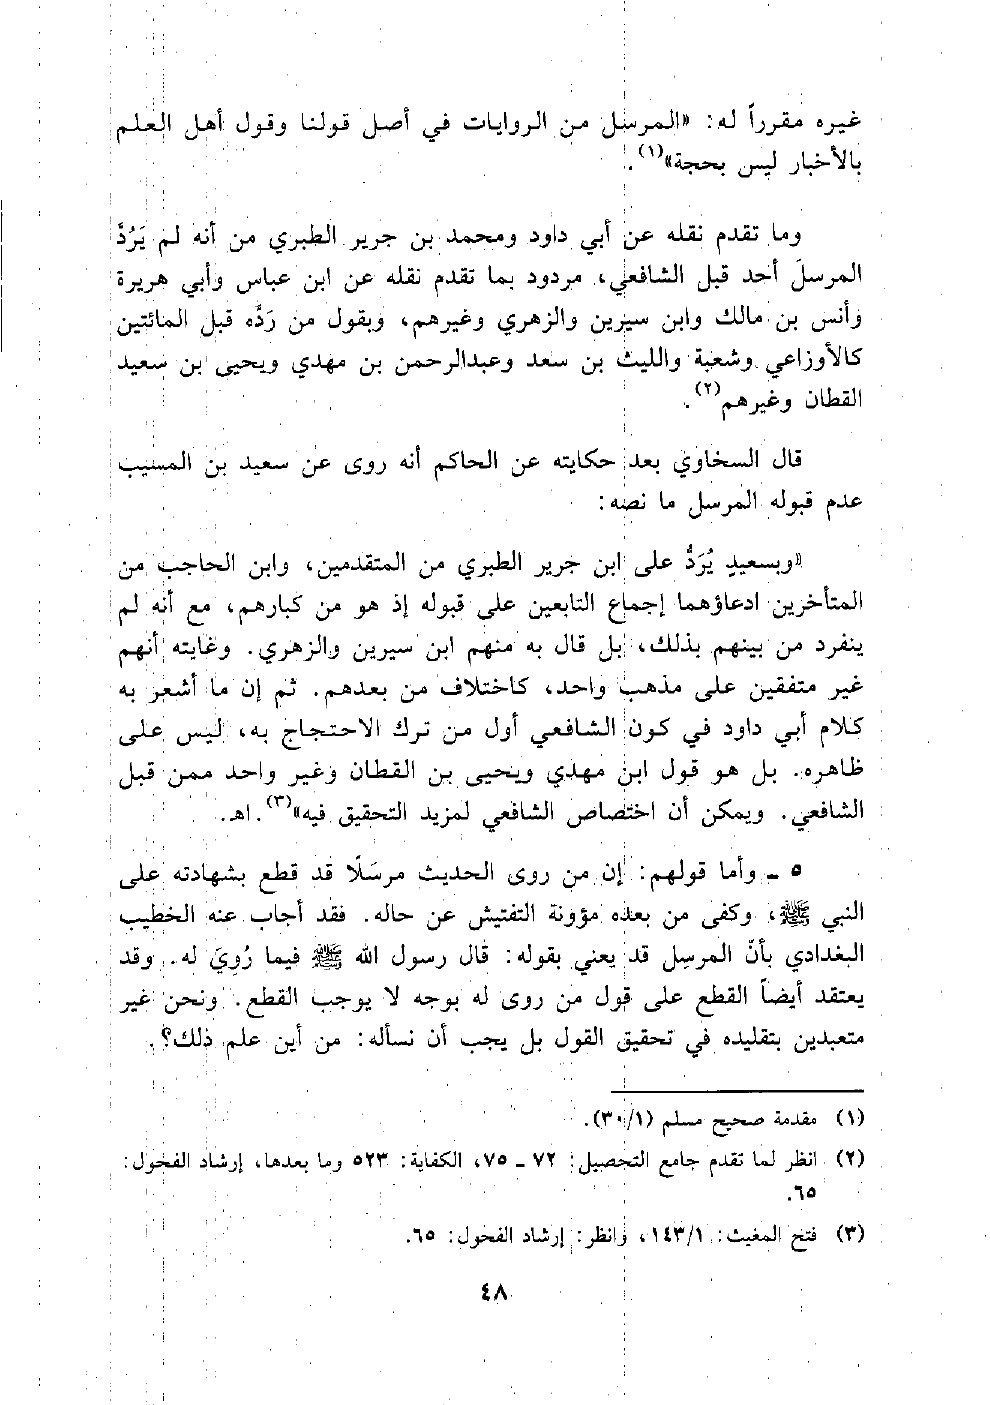 غيره مقرراً له: «المرسل من الروايات في أصل قولنا وقول أهل العلم
بالأخبار ليس بحجة»(١).
وما تقدم نقله عن أبي داود ومحمد بن جرير الطبري من أنه لم يَرُدَّ
المرسلَ أحد قبل الشافعي، مردود بما تقدم نقله عن ابن عباس وأبي هريرة
وأنس بن مالك وابن سيرين والزهري وغيرهم، وبقول من رَدَّه قبل المائتين
كالأوزاعي وشعبة والليث بن سعد وعبدالرحمن بن مهدي ويحيى بن سعيد
القطان وغيرهم(٢).
قال السخاوي بعد حكايته عن الحاكم أنه روى عن سعيد بن المسيب
عدم قبوله المرسل ما نصه:
«وبسعيدٍ يُرَدُّ على ابن جرير الطبري من المتقدمين، وابن الحاجب من
المتأخرين ادعاؤهما إجماع التابعين على قبوله إذ هو من كبارهم، مع أنه لم
ينفرد من بينهم بذلك، بل قال به منهم ابن سيرين والزهري. وغايته أنهم
غير متفقين على مذهب واحد، كاختلاف من بعدهم. ثم إن ما أشعر به
كلام أبي داود في كون الشافعي أول من ترك الاحتجاج به، ليس على
ظاهره. بل هو قول ابن مهدي ويحيى بن القطان وغير واحد ممن قبل
الشافعي. ويمكن أن اختصاص الشافعي لمزيد التحقيق فيه»(٣). اهـ.
٥ ـ وأما قولهم: إن من روى الحديث مرسَلًا قد قطع بشهادته على
النبي ﷺ، وكفى من بعده مؤونة التفتيش عن حاله. فقد أجاب عنه الخطيب
البغدادي بأنّ المرسِل قد يعني بقوله: قال رسول الله ﷺ فيما رُوِيَ له. وقد
يعتقد أيضاً القطع على قول من روى له بوجه لا يوجب القطع. ونحن غير
متعبدين بتقليده في تحقيق القول بل يجب أن نسأله: من أين علم ذلك؟.
(١) مقدمة صحيح مسلم (٣٠/١).
(٢) انظر لما تقدم جامع التحصيل: ٧٢ ـ ٧٥، الكفاية: ٥٢٣ وما بعدها، إرشاد الفحول:
٦٥.
(٣) فتح المغيث: ١٤٣/١، وانظر: إرشاد الفحول: ٦٥.
٤٨